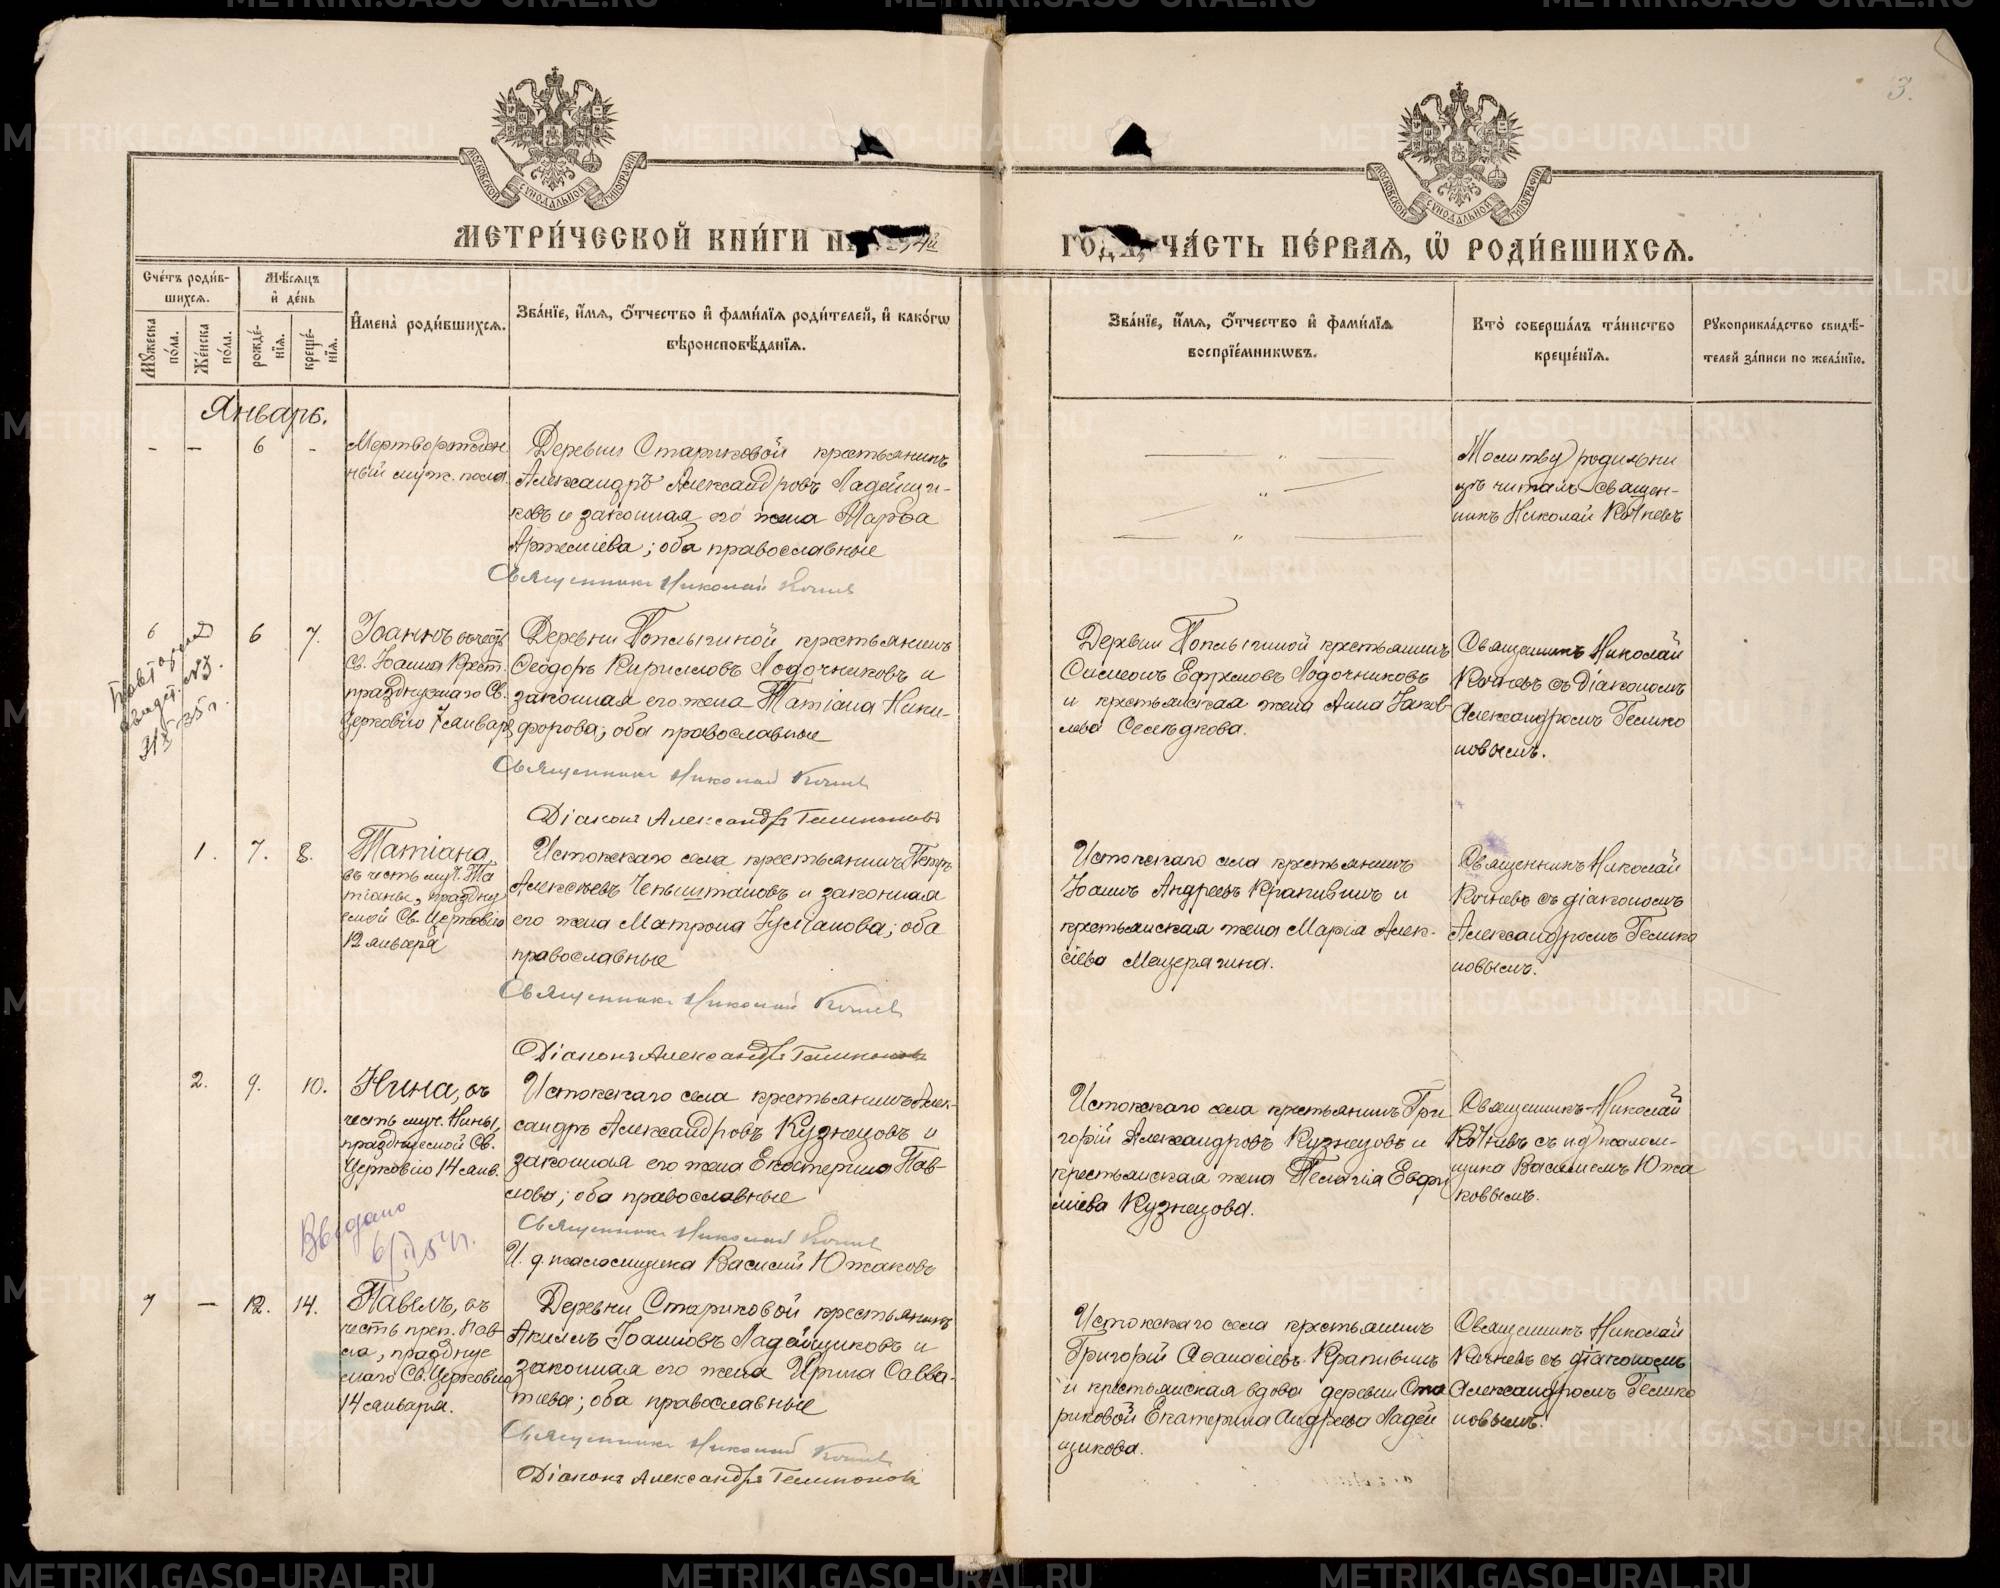 3.
МОСКОВСКОЙ СѴНОДАЛЬНОЙ ТИПОГРАФІИ
МОСКОВСКОЙ СѴНОДАЛЬНОЙ ТИПОГРАФІИ
МЕТРИ́ЧЕСКОЙ КНИ́ГИ Н 4й
ГОДА, ЧА́СТЬ ПЕ́РВАѦ, Ѽ РОДИ́ВШИХСѦ.
Сче́тъ роди́в-
шихсѧ.
Мѣ́сѧцъ
и҆ де́нь
И҆мена̀ роди́вшихсѧ.
Зва́нїе, и҆́мѧ, ѻ҆́тчество и҆ фами́лїѧ роди́телей, и҆ како́гѡ
вѣроисповѣ́данїѧ.
Мꙋ́жеска
по́ла.
Же́нска
по́ла.
рожде́-
нїѧ.
креще́-
нїѧ.
Зва́нїе, и҆́мѧ, ѻ҆́тчество и҆ фами́лїѧ
воспрїе́мникѡвъ.
Кто̀ соверша́лъ та́инство
креще́нїѧ.
Рꙋкоприкла́дство свидѣ́-
телей за́писи по жела́нїю.
Январь.
- - 6 -
Мертворожден-
ный муж. пола.
Деревни Стариковой крестьянинъ
Александръ Александровъ Ладейщи-
ковъ и законная его жена Марѳа
Артеміева; оба православные
Священникъ Николай Кочневъ
Молитву родильни
цѣ читалъ священ-
никъ Николай Кочневъ
6 6 7.
Іоаннъ въ честь
Св. Іоанна Крест.
празднуемаго Св.
Церковію 7 января
Деревни Поплыгиной крестьянинъ
Ѳеодоръ Кирилловъ Лодочниковъ и
законная его жена Татіана Ники-
форова; оба православные
Священникъ Николай Кочневъ
Діаконъ Александръ Гелиноновъ
Деревни Поплыгиной крестьянинъ
Симеонъ Ефремовъ Лодочниковъ
и крестьянская жена Анна Іаков-
лева Селѣдкова.
Священникъ Николай
Кочневъ съ діакономъ
Александромъ Гелико
новымъ.
1. 7. 8.
Татіана,
въ честь муч. Та
тіаны, праздну
емой Св. Церковію
12 января
Истокскаго села крестьянинъ Петръ
Алексѣевъ Чепыштановъ и законная
его жена Матрона Іуліанова; оба
православные
Священникъ Николай Кочневъ
Діаконъ Александръ Гелиноновъ
Истокскаго села крестьянинъ
Іоаннъ Андреевъ Крапивинъ и
крестьянская жена Марія Алек-
сіева Мещерягина.
Священникъ Николай
Кочневъ съ діакономъ
Александромъ Гелико
новымъ.
2. 9. 10.
Нина, въ
честь муч. Нины,
празднуемой Св.
Церковію 14 янв.
Выдано
Истокскаго села крестьянинъ Алек-
сандръ Александровъ Кузнецовъ и
законная его жена Екатерина Пав-
лова; оба православные
Священникъ Николай Кочневъ
И. д. псаломщика Василий Южаковъ
Истокскаго села крестьянинъ Гри
горій Александровъ Кузнецовъ и
крестьянская жена Пелагія Евфи
міева Кузнецова.
Священникъ Николай
Кочневъ съ и. д. псалом-
щика Василіемъ Южа
ковымъ.
7 - 12. 14.
Павелъ, въ
честь преп. Пав-
ла, праздну
емаго Св. Церковію
14 января.
Деревни Стариковой крестьянинъ
Акилъ Іоанновъ Ладейщиковъ и
законная его жена Ирина Савва-
тіева; оба православные
Священникъ Николай Кочневъ
Діаконъ Александръ Гелиноновъ
Истокскаго села крестьянинъ
Григорій Аѳанасіевъ Крапивинъ
и крестьянская вдова деревни Ста
риковой Екатерина Андреева Ладей
щикова.
Священникъ Николай
Кочневъ съ діакономъ
Александромъ Гелико
новымъ.
METRIKI.GASO-URAL.RU